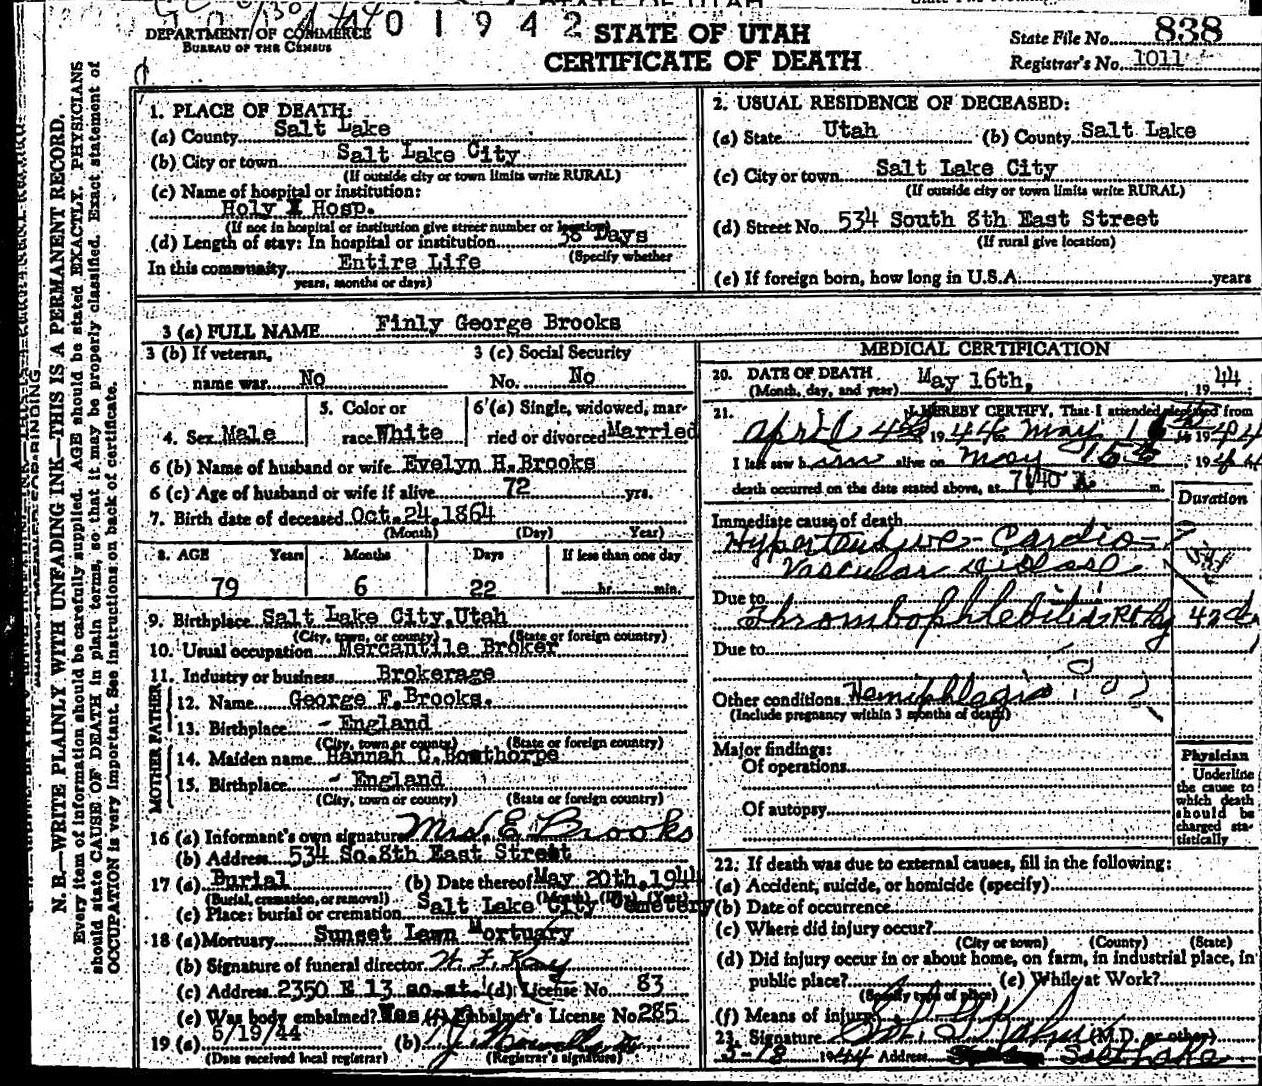 STATE OF UTAH
DEPARTMENT OF COMMERCE
BUREAU OF THE CENSUS
01942
STATE OF UTAH
CERTIFICATE OF DEATH
State File No. 838
Registrar's No. 1011
N. B.—WRITE PLAINLY WITH UNFADING INK—THIS IS A PERMANENT RECORD.
Every item of information should be carefully supplied. AGE should be stated EXACTLY. PHYSICIANS
should state CAUSE OF DEATH in plain terms, so that it may be properly classified. Exact statement of
OCCUPATION is very important. See instructions on back of certificate.
1. PLACE OF DEATH:
(a) County Salt Lake
(b) City or town Salt Lake City
(If outside city or town limits write RURAL)
(c) Name of hospital or institution:
Holy X Hosp.
(If not in hospital or institution give street number or location)
(d) Length of stay: In hospital or institution 38 Days
(Specify whether
In this community Entire Life
years, months or days)
2. USUAL RESIDENCE OF DECEASED:
(a) State Utah (b) County Salt Lake
(c) City or town Salt Lake City
(If outside city or town limits write RURAL)
(d) Street No. 534 South 8th East Street
(If rural give location)
(e) If foreign born, how long in U.S.A. years
3 (a) FULL NAME Finly George Brooks
3 (b) If veteran,
name war No
3 (c) Social Security
No. No
4. Sex Male
5. Color or
race White
6 (a) Single, widowed, mar-
ried or divorced Married
6 (b) Name of husband or wife Evelyn H. Brooks
6 (c) Age of husband or wife if alive 72 yrs.
7. Birth date of deceased Oct. 24, 1864
(Month) (Day) Year)
8. AGE Years Months Days If less than one day
79 6 22 hr. min.
9. Birthplace Salt Lake City, Utah
(City, town, or county) (State or foreign country)
10. Usual occupation Mercantile Broker
11. Industry or business Brokerage
FATHER
12. Name George F. Brooks.
13. Birthplace - England
(City, town or county) (State or foreign country)
MOTHER
14. Maiden name Hannah C. Bowthorpe
15. Birthplace - England
(City, town or county) (State or foreign country)
16 (a) Informant's own signature Mrs. E Brooks
(b) Address 534 So. 8th East Street
17 (a) Burial (b) Date thereof May 20th, 1944
(Burial, cremation, or removal) (Month) (Day) (Year)
(c) Place: burial or cremation Salt Lake City Cemetery
18 (a) Mortuary Sunset Lawn Mortuary
(b) Signature of funeral director
(c) Address 2350 E 13 so. st. (d) License No. 83
(e) Was body embalmed? (f) Embalmer's License No. 285
19 (a) 5/19/44 (b)
(Date received local registrar) (Registrar's signature)
MEDICAL CERTIFICATION
20. DATE OF DEATH May 16th, 1944
(Month, day, and year)
21. I HEREBY CERTIFY, That I attended deceased from
April 4th 1944 to May 1944
I last saw him alive on May 15th, 1944
death occurred on the date stated above, at 7:40 A. m.
Duration
Immediate cause of death
Hypertensive - Cardio
Vascular Disease
Due to
Thrombophlebitis Rt leg 42 d
Due to
Other conditions Hemiphlegia
(Include pregnancy within 3 months of death)
Major findings:
Of operations
Of autopsy
Physician
Underline
the cause to
which death
should be
charged sta-
tistically
22. If death was due to external causes, fill in the following:
(a) Accident, suicide, or homicide (specify)
(b) Date of occurrence
(c) Where did injury occur?
(City or town) (County) (State)
(d) Did injury occur in or about home, on farm, in industrial place, in
public place? (e) While at Work?
(Specify type of place)
(f) Means of injury
23. Signature (M.D. or other)
5-18 1944 Address Salt Lake